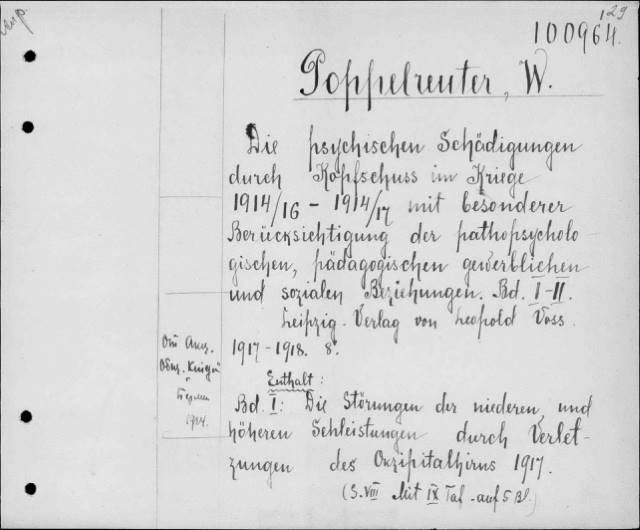 129
100964.
Poppelreuter, W.
Die psychischen Schädigungen
durch Kopfschuss im Kriege
1914/16 - 1914/17 mit besonderer
Berücksichtigung der pathopsycholo-
gischen, pädagogischen gewerblichen
und sozialen Beziehungen. Bd. I-II.
Leipzig. Verlag von Leopold Voss.
1917-1918. 8°.
Enthalt:
Bd. I: Die Störungen der niederen und
höheren Sehleistungen durch Verlet-
zungen des Okzipitalhirns 1917.
(S. VIII Mit IX Taf. auf 5 Bl.)